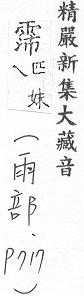 精嚴新集大藏音
霈匹妹
（雨部．P717）